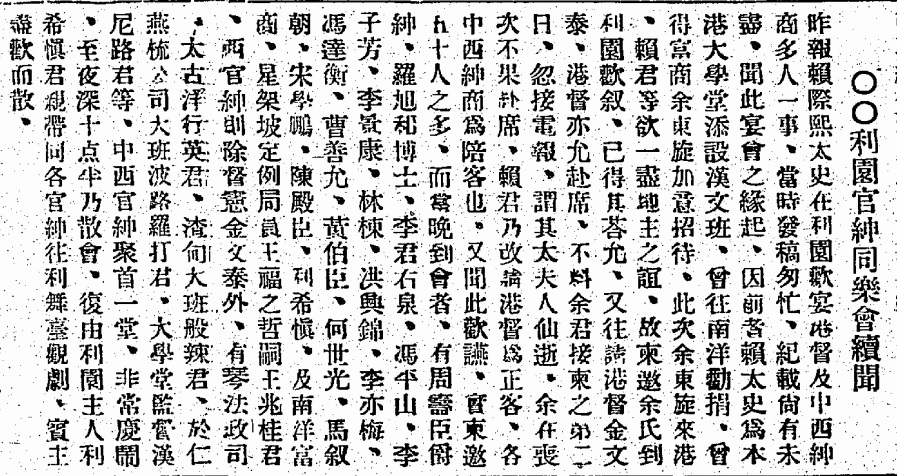 〇〇利園官紳同樂會續聞
昨報賴際熙太史在利園歡宴港督及中西紳
商多人一事、當時發稿匆忙、紀載尙有未
盡、聞此宴會之緣起、因前者賴太史爲本
港大學堂添設漢文班、曾往南洋勸捐、曾
得富商余東旋加意招待、此次余東旋來港
、賴君等欲一盡地主之誼、故柬邀余氏到
利園歡叙、已得其荅允、又往請港督金文
泰、港督亦允赴席、不料余君接柬之弟二
日、忽接電報、謂其太夫人仙逝、余在喪
次不果赴席、賴君乃改請港督爲正客、各
中西紳商爲陪客也、又聞此歡讌、實柬邀
五十人之多、而當晚到會者、有周壽臣爵
紳、羅旭和博士、李君右泉、馮平山、李
子芳、李景康、林棟、洪興錦、李亦梅、
馮達衡、曹善允、黃伯臣、何世光、馬叙
朝、宋學鵬、陳殿臣、利希愼、及南洋富
商、星架坡定例局員王福之哲嗣王兆桂君
、西官紳則除督憲金文泰外、有琴法政司
、太古洋行英君、渣甸大班般辣君、於仁
燕梳公司大班波路羅打君、大學堂監督漢
尼路君等、中西官紳聚首一堂、非常慶鬧
、至夜深十点半乃散會、復由利園主人利
希愼君親帶同各官紳往利舞臺觀劇、賓主
盡歡而散、